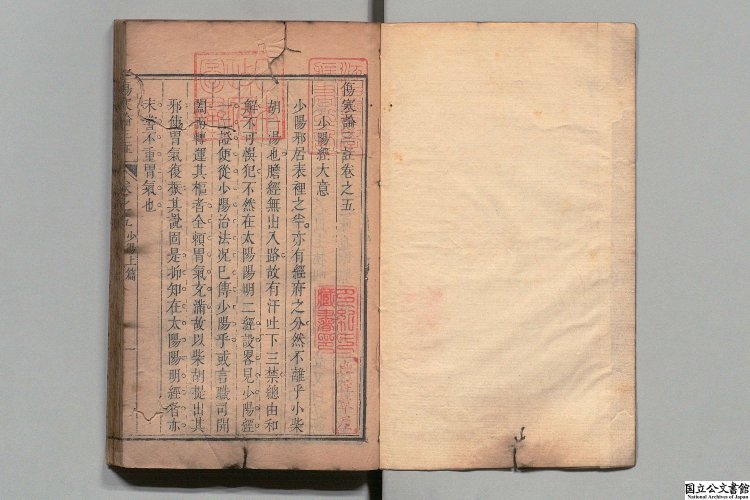 傷寒論三註卷之五
少陽經大意
少陽邪居表裡之半亦有經府之分然不離乎小柴
胡一湯也膽經無出入路故有汗吐下三禁總由和
解不可悞犯不然在太陽陽明二經設畧見少陽經
一證便從少陽治法况巳傳少陽乎或言職司開
闔而轉運其樞者全頼胃氣充滿故以柴胡提出其
邪使胃氣復振其說固是抑知在太陽陽明經者亦
未嘗不重胃氣也
傷寒論三註 卷之五 少陽上篇
国立公文書館
National Archives of Japan